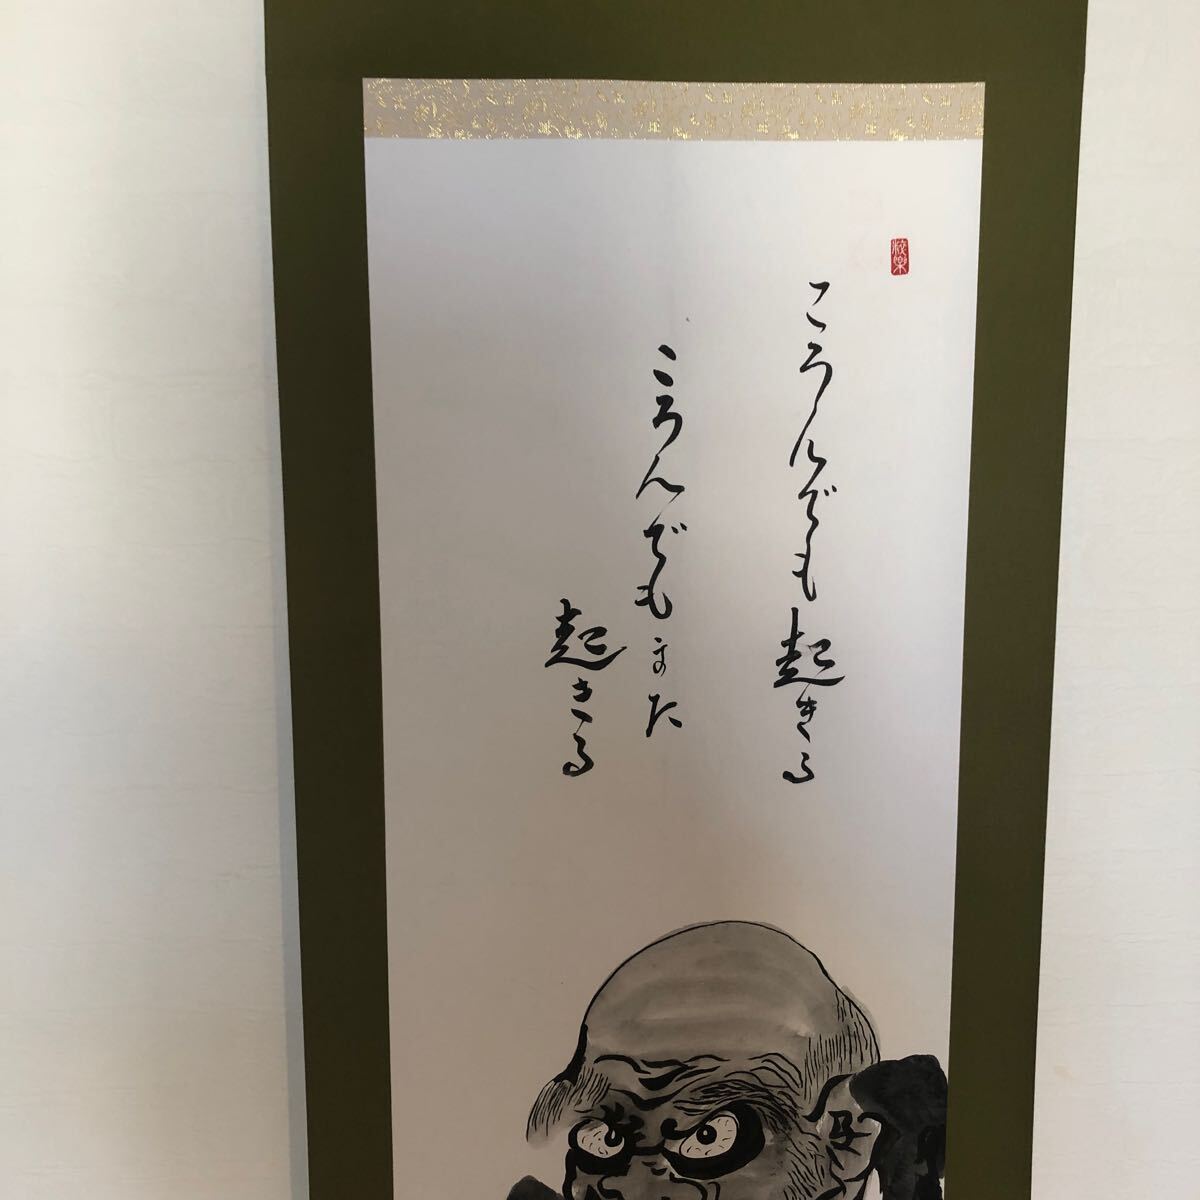 ころんでも起きる
ころんでもまた
起きる